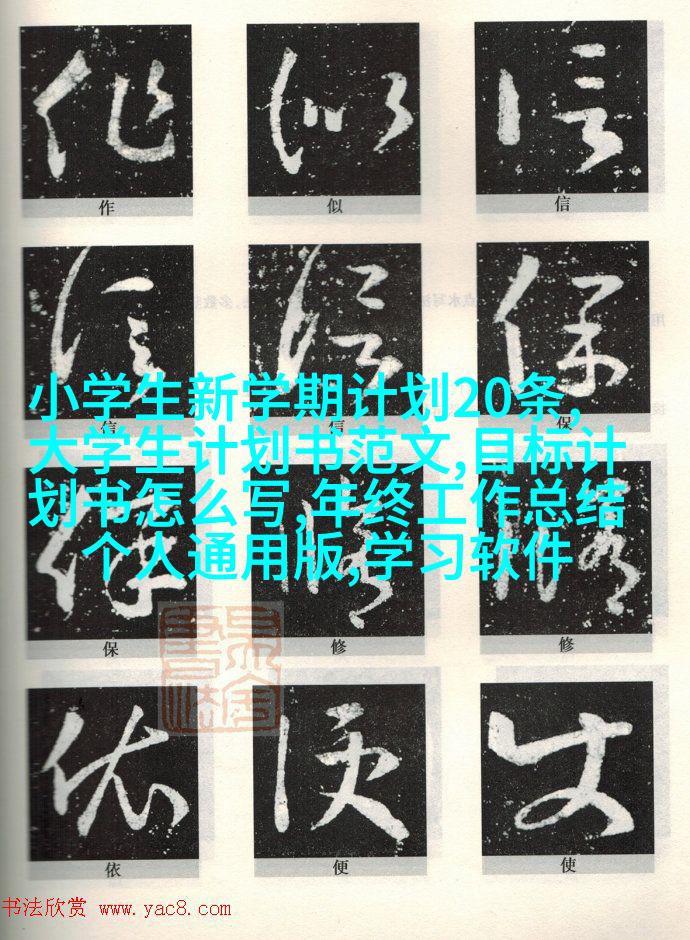 作 似 信
信 信 保
小学生新学期计划20条,
大学生计划书范文,目标计
划书怎么写,年终工作总结
个人通用版,学习软件
保 修 修
依 便 使
书法欣赏 www.yac8.com